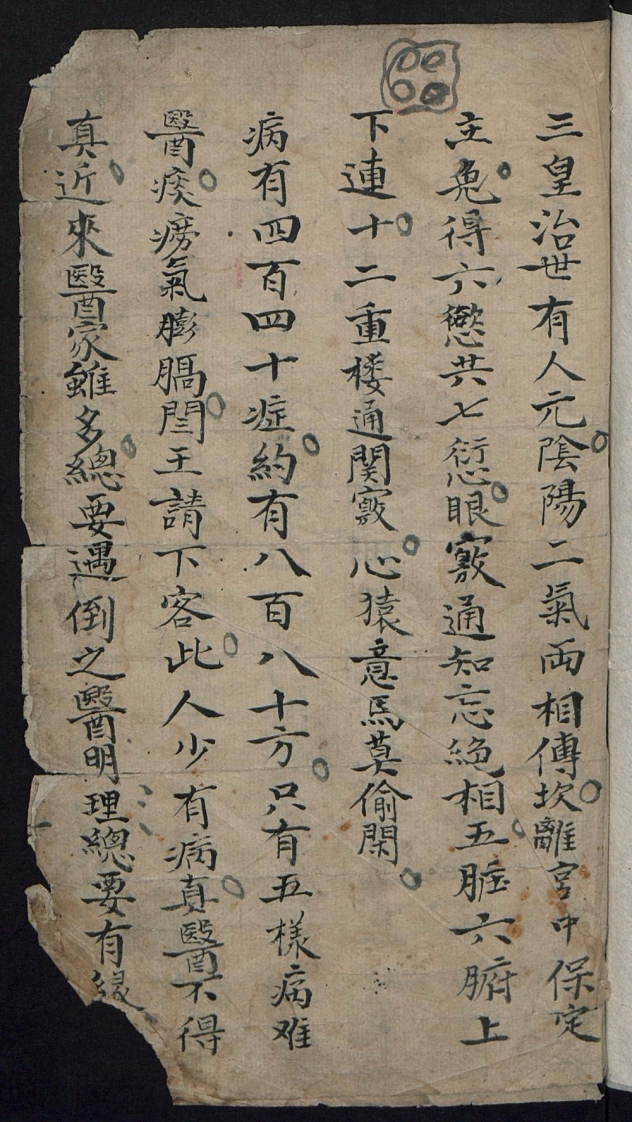 三皇治世有人元陰陽二氣両相傳坎離宮中保定
主兎得六慾共七衍心眼竅通知忘絕相五脏六腑上
下連十二重楼通関竅心猿意馬莫偷閑
病有四百四十症約有八百八十方只有五樣病难
醫痰癆氣膨膈閆王請下客此人少有病真醫不得
真近來醫家雖多總要遇倒之醫明理總要有緣